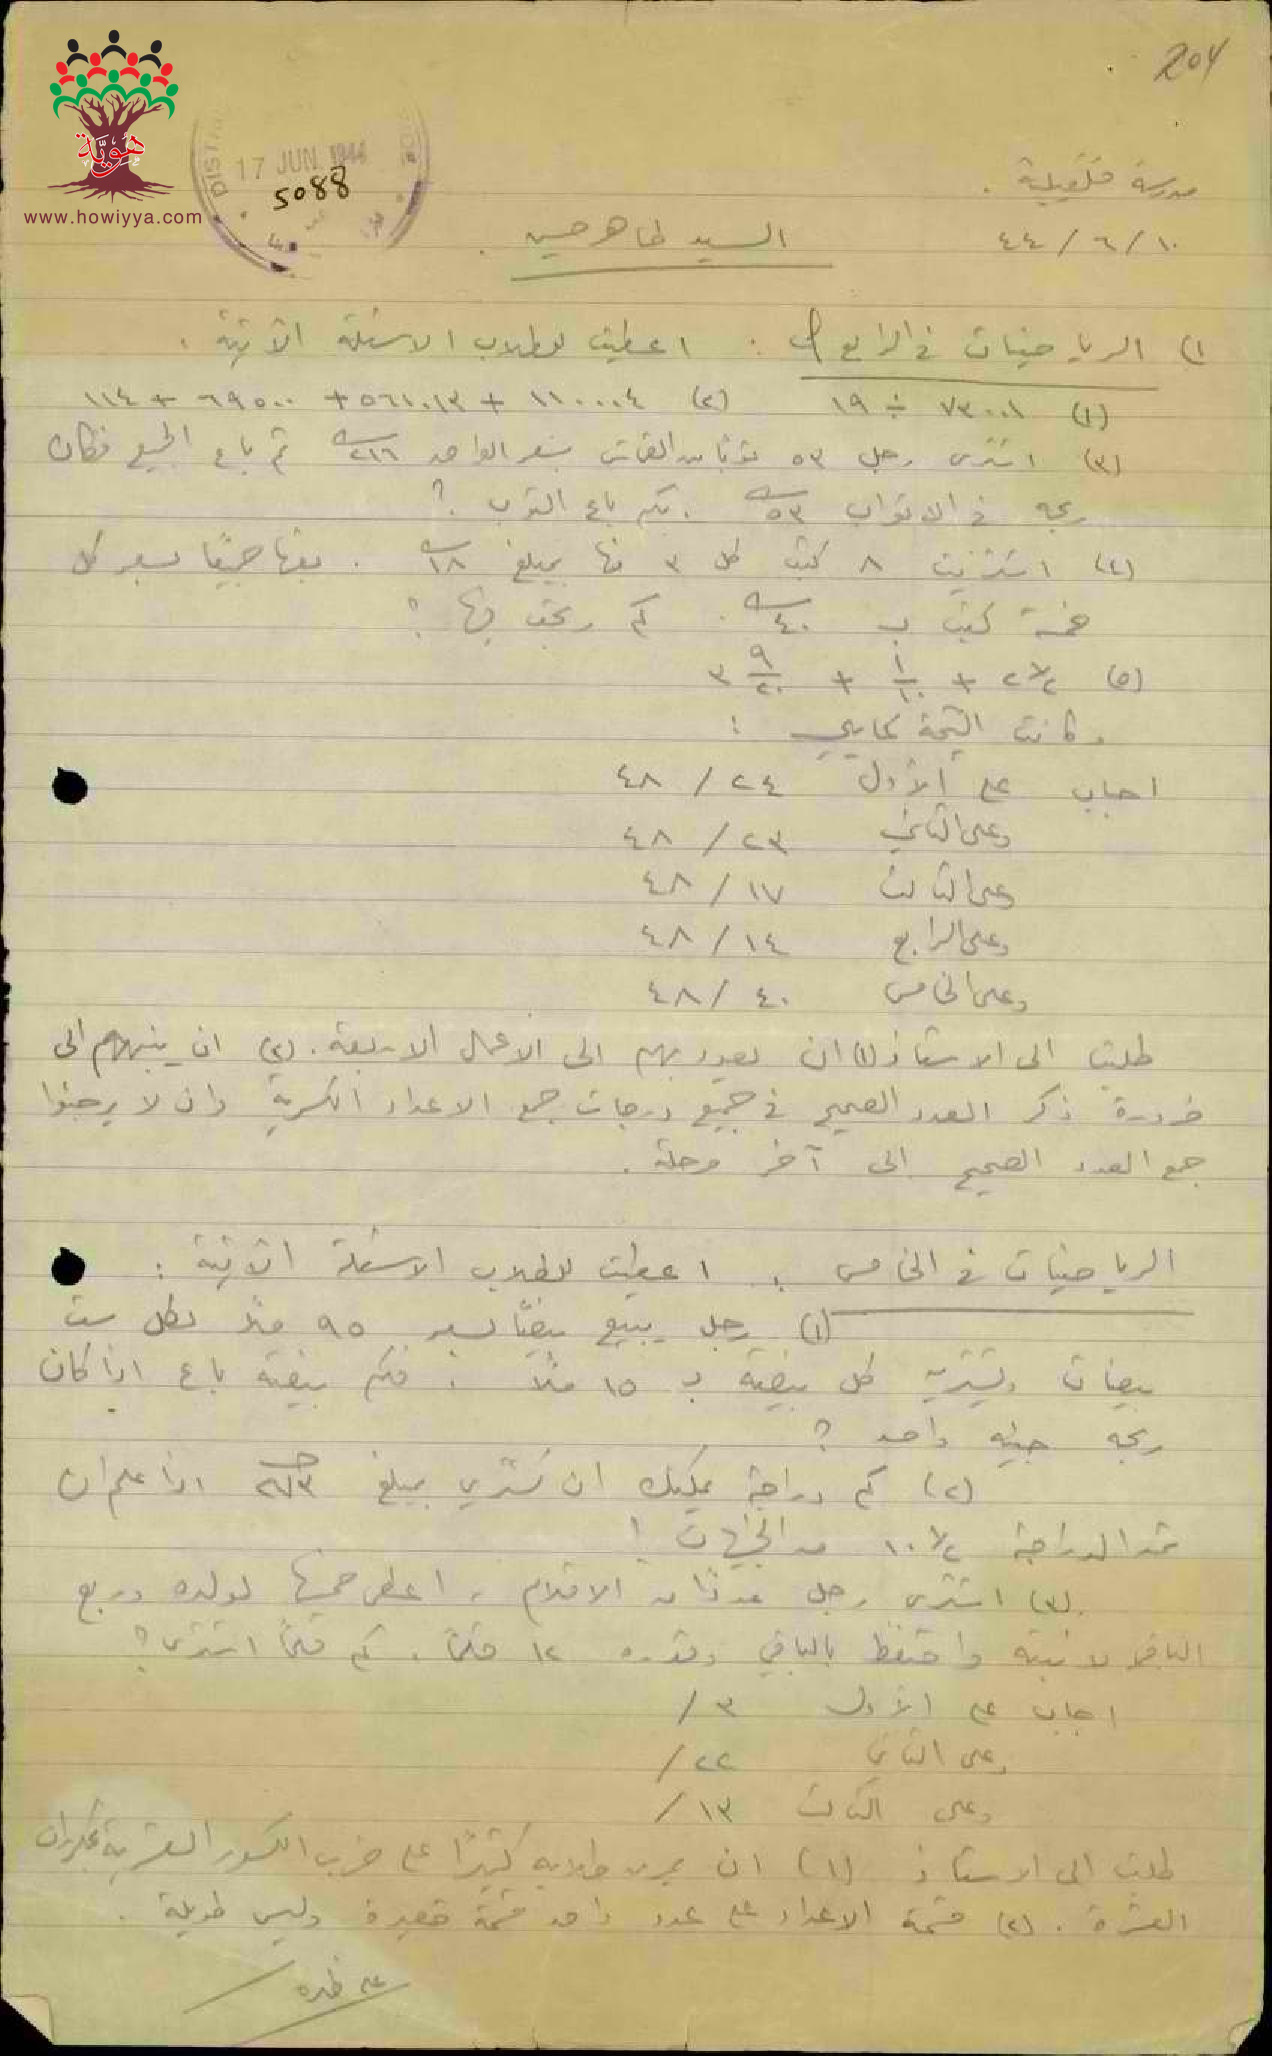 204
هوية
www.howiyya.com
DIST
17 JUN 1944
5088
مدرسة قلقيلية .
١٠/٦/٤٤
السيد طاهر حسين .
١) الرياضيات في الرابع أ : اعطيت للطلاب الاسئلة الآتية .
(١) ٧٣٠٠١ ÷ ١٩ (٢) ١١٠٠٠٤ + ٥٦١٠١٣ + ٦٩٥٠٠ + ١١٤
(٣) اشترى رجل ٥٣ ثوبا من القماش بسعر الواحد ٢١٦ ثم باع الجميع فكان
ربحه في الاثواب ٥٣ . بكم باع الثوب ؟
(٤) اشتريت ٨ كتب كل ٣ منها بمبلغ ١٨ . بعتها جميعًا بسعر كل
خمسة كتب ب ٤٠ . كم ربحت فيها ؟
(٥) ٢ ١/٢ + ١/١٠ + ٣ ٩/٢٠
وكانت النتيجة كما يلي :
اجاب على الأول ٢٤ / ٤٨
وعلى الثاني ٢٣ / ٤٨
وعلى الثالث ١٧ / ٤٨
وعلى الرابع ١٤ / ٤٨
وعلى الخامس ٤٠ / ٤٨
طلبت الى الاستاذ (١) ان يعود بهم الى الاعمال الاربعة . (٢) ان ينبههم الى
ضرورة ذكر العدد الصحيح في جميع درجات جمع الاعداد الكسرية وان لا يرجئوا
جمع العدد الصحيح الى آخر مرحلة .
الرياضيات في الخامس : اعطيت للطلاب الاسئلة الآتية :
(١) رجل يبيع بيضًا بسعر ٩٥ ملا لكل ست
بيضات ويشتريه كل بيضة ب ١٥ ملاً . فكم بيضة باع اذا كان
ربحه جنيه واحد ؟
(٢) كم دراجة يمكنك ان تشتري بمبلغ ٢٧٣ اذا علم ان
ثمن الدراجة ١٠ ١/٢ من الجنيهات !
(٣) اشترى رجل عددًا من الاقلام ، اعطى خمسها لولده وربع
الباقي لابنته واحتفظ بالباقي وقدره ١٢ قلمًا . كم قلمًا اشترى ؟
اجاب على الأول ٣ /
وعلى الثاني ٢٢ /
وعلى الثالث ١٣ /
طلبت الى الاستاذ (١) ان يمرن طلابه كثيرًا على ضرب الكسور العشرية
العشرة . (٢) قسمة الاعداد على عدد واحد قسمة قصيرة وليس طويلة .